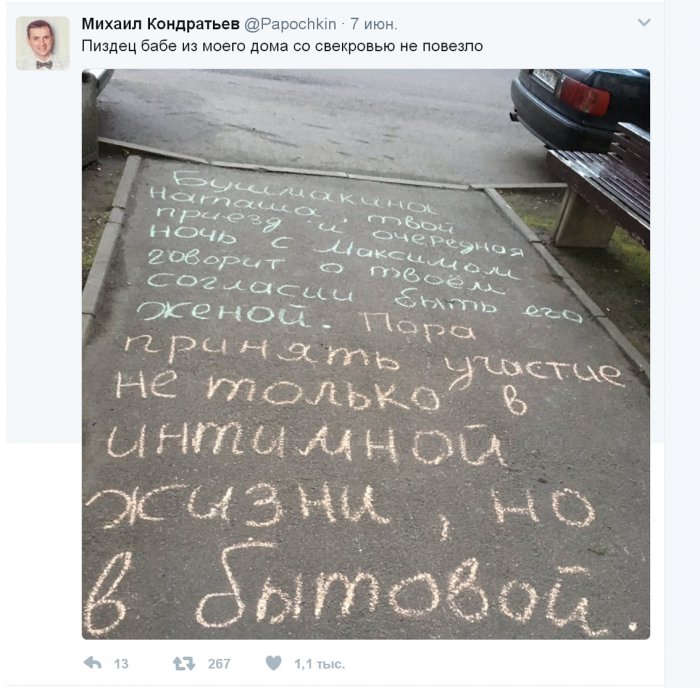 Михаил Кондратьев @Papochkin · 7 июн.
Пиздец бабе из моего дома со свекровью не повезло
Бушмакина
наташа, твой
приезд и очередная
ночь с Максимом
говорит о твоём
согласии быть его
женой. Пора
принять участие
не только в
интимной
жизни, но
в бытовой.
13 267 1,1 тыс.